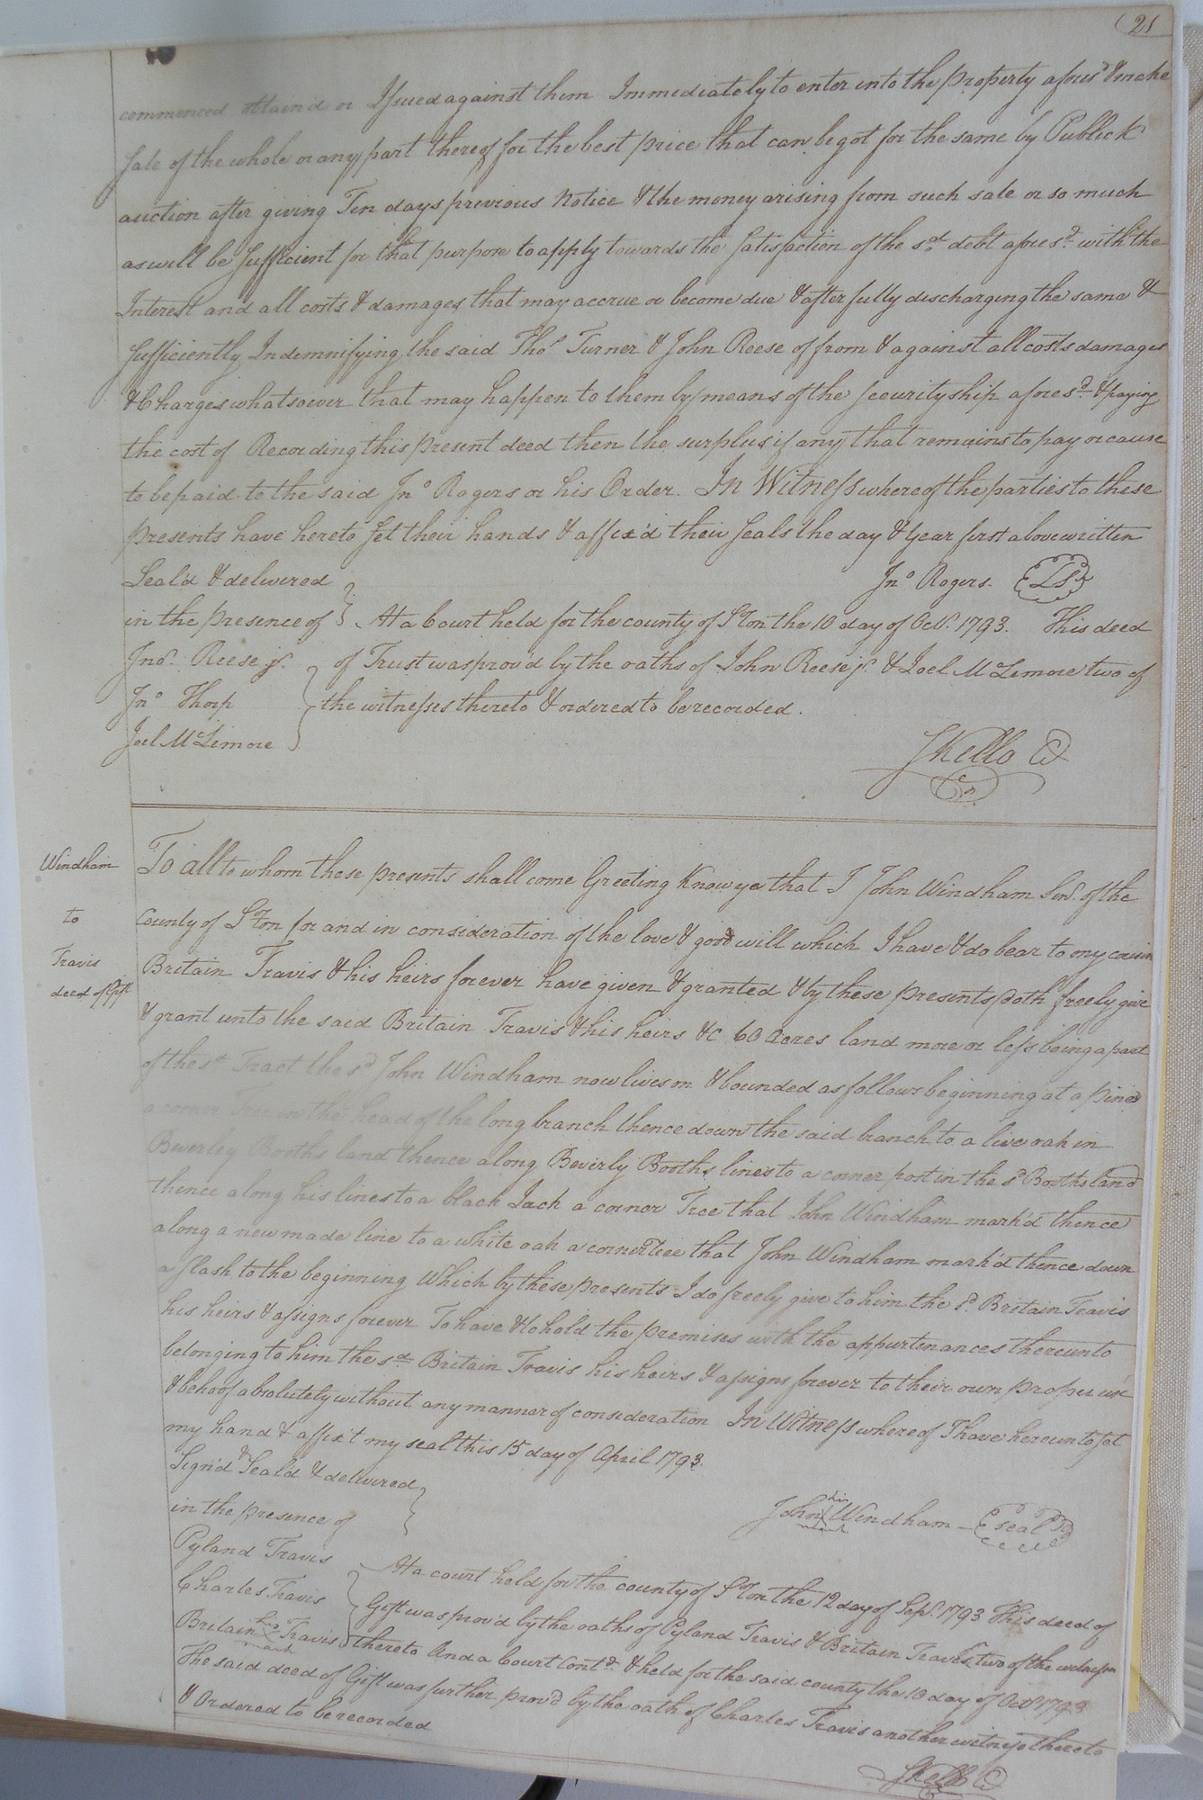 21
commenced obtained or Issued against them Immediately to enter into the property afores.d & make
Sale of the whole or any part thereof for the best price that can be got for the same by Publick
auction after giving Ten days previous Notice & the money arising from such sale or so much
as will be Sufficient for that purpose to apply towards the Satisfaction of the s.d debt afores.d with the
Interest and all costs & damages that may accrue or become due & after fully discharging the same &
Sufficiently Indemnifying the said Tho.s Turner & John Reese of from & against all costs damages
& Charges whatsoever that may happen to them by means of the Securityship afores.d & paying
the cost of Recording this present deed then the surplus if any that remains to pay or cause
to be paid to the said Jn.o Rogers or his Order. In Witness whereof the parties to these
presents have hereto Set their hands & affix'd their Seals the day & Year first above written
Seal'd & delivered Jn.o Rogers. LS.
in the presence of At a Court held for the county of S.ton the 10 day of Oct.r 1793. This deed
Jno. Reese jr. of Trust was prov'd by the oaths of John Reese jr. & Joel McLemore two of
Jn.o Thorp the witnesses thereto & ordered to be recorded.
Joel McLemore
S Kello C
Windham
to
Travis
deed of Gift
To all to whom these presents shall come Greeting Know ye that I John Windham Sen.r of the
County of S.ton for and in consideration of the love & good will which I have & do bear to my cousin
Britain Travis & his heirs forever have given & granted & by these presents doth freely give
& grant unto the said Britain Travis & his heirs &c 60 acres land more or less being a part
of the s.d Tract the s.d John Windham now lives on & bounded as follows beginning at a pine
a corner tree in the head of the long branch thence down the said branch to a live oak in
Beverley Booths land thence along Bevirly Booths lines to a corner post in the s.d Booths land
thence along his lines to a black Jack a cornor Tree that John Windham mark'd thence
along a new made line to a white oak a corner tree that John Windham mark'd thence down
a slash to the beginning Which by these presents I do freely give to him the s.d Britain Travis
his heirs & assigns forever To have & to hold the premises with the appurtenances thereunto
belonging to him the s.d Britain Travis his heirs & assigns forever to their own proper use
& behoof absolutely without any manner of consideration In Witness whereof I have hereunto set
my hand & affix't my seal this 15 day of April 1793.
Sign'd Seal'd & delivered
in the presence of John his mark Windham seal
Pyland Travis At a court held for the county of S.ton the 12 day of Sep.r 1793 This deed of
Charles Travis Gift was prov'd by the oaths of Pyland Travis & Britain Travis two of the witnesses
Britain his mark Travis thereto And a Court Cont.d & held for the said county the 10 day of Oct.r 1793
The said deed of Gift was further prov'd by the oath of Charles Travis another witness thereto
& Ordered to be recorded
S Kello C